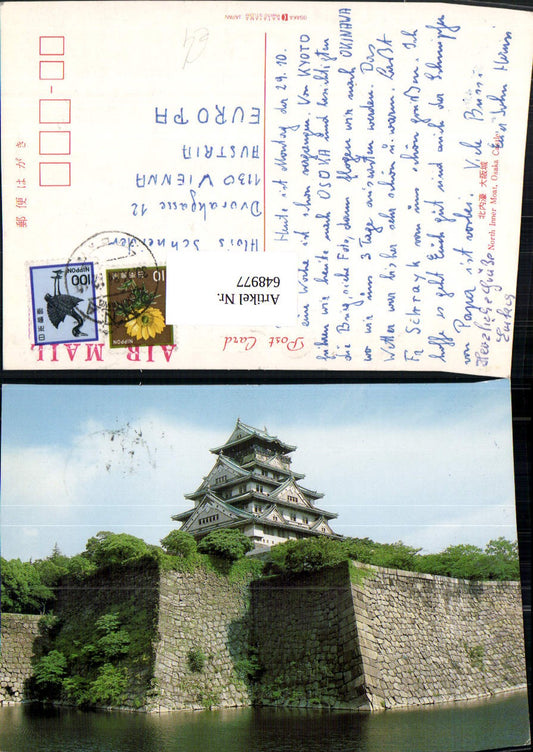 OSAKA JAPAN
郵便はがき
Heute ist Montag der 29.10.
eine Woche ist schon vergangen. Von KYOTO
fuhren wir heute nach OSAKA und besichtigten
die Burg siehe Foto, dann flogen wir nach OKINAWA
wo wir uns 3 Tage ausrasten werden. Das
Wetter war bisher sehr schön u. warm. Laßt
Fa Schrayk von uns schön grüßen. Ich
hoffe es geht Euch gut und auch der Schnupfen
von Papa ist vorbei. Viele Bussi
Herzliche Grüße Euer Sohn Heinzi
Alois Schneider
Dvorakgasse 12
1130 VIENNA
AUSTRIA
EUROPA
北内濠 大阪城
North Inner Moat, Osaka Castle
Post Card
AIR MAIL
Artikel Nr.
648977
100
日本郵便
NIPPON
10
日本郵便
NIPPON